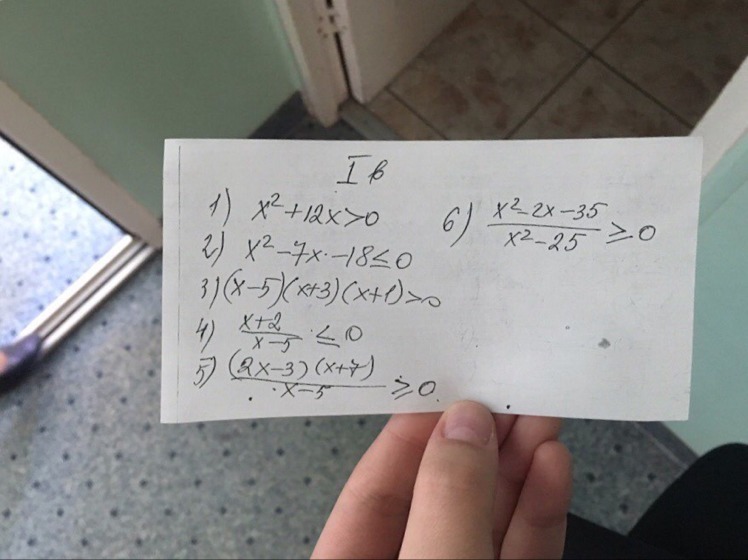 I в
1) x²+12x>0
2) x²-7x-18≤0
3) (x-5)(x+3)(x+1)>0
4) x+2/x-5 ≤0
5) (2x-3)(x+7)/x-5 ≥0
6) x²-2x-35/x²-25 ≥0